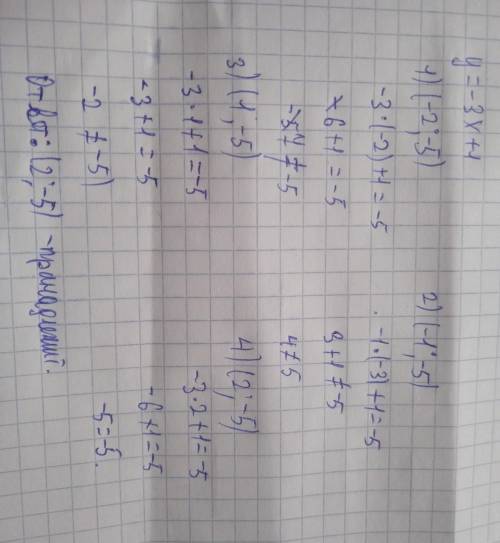 y = -3x+1
1) (-2; -5)
-3·(-2)+1 = -5
6+1 = -5
≠ -5
2) (-1; -5)
-1·(-3)+1 = -5
3+1 ≠ -5
4 ≠ 5
3) (1; -5)
-3·1+1 = -5
-3+1 = -5
-2 ≠ -5)
4) (2; -5)
-3·2+1 = -5
-6+1 = -5
-5 = -5.
Ответ: (2; -5) -